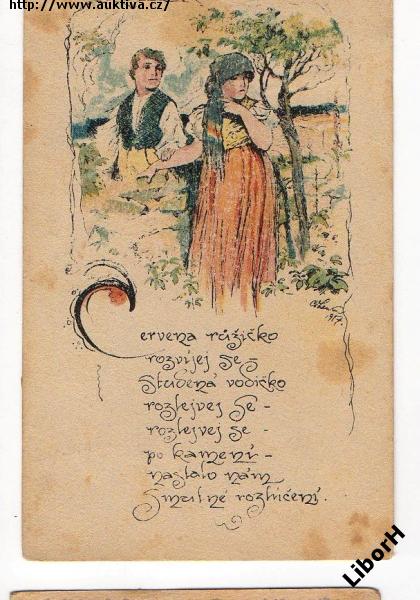 http://www.auktiva.cz7
1917.
Červena růžičko
rozvijej se -
Studená vodičko
rozlejvej se -
rozlejvej se -
po kamení -
nastalo nám
Smutné rozlučení.
LiborH